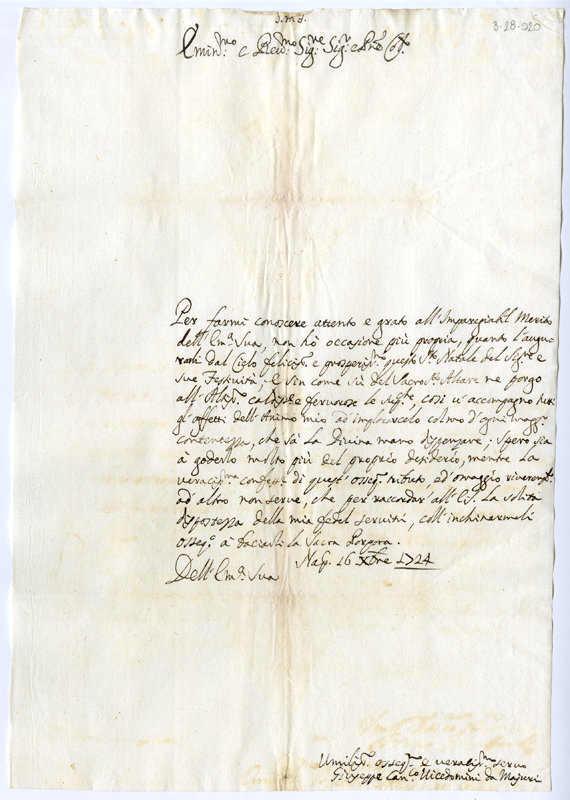 J.M.J.
3-28-020
Emin:mo e Rev:mo Sig:re Sig:r e Pne Col:mo
Per farmi conoscere attento e grato all'Impareggiabl Merito
dell'Em:a Sua, non hò occasione più propria, quanto l'augu-
rarli dal Cielo felicis: e prosperis:mo questo S:to Natale del Sig:re e
sue Festività; E sin come sù del Sacros:to Altare ne porgo
all'Altis: calde e fervorose le supp:che, così v'accompagno
gl'affetti dell'Animo mio ad implorarcelo colmo d'ogni magg:r
contentezza, che sà la Divina mano dispensare. Spero sia
à goderlo molto più del proprio desiderio, mentre la
veracis:ma confess: di quest'osseq: tributo, ad omaggio riverent:e
ad altro non serve, che per raccordar'all'E.S. la solita
dispostezza della mia fedel servitù, coll'inchinarmeli
osseq:o à baciarli la Sacra Porpora.
Nap: 16 Xbre 1724
Dell'Em:a Sua
Umilis: osseq:mo e veralis:mo servo
Giuseppe Can:co Vicedomini da Majuri